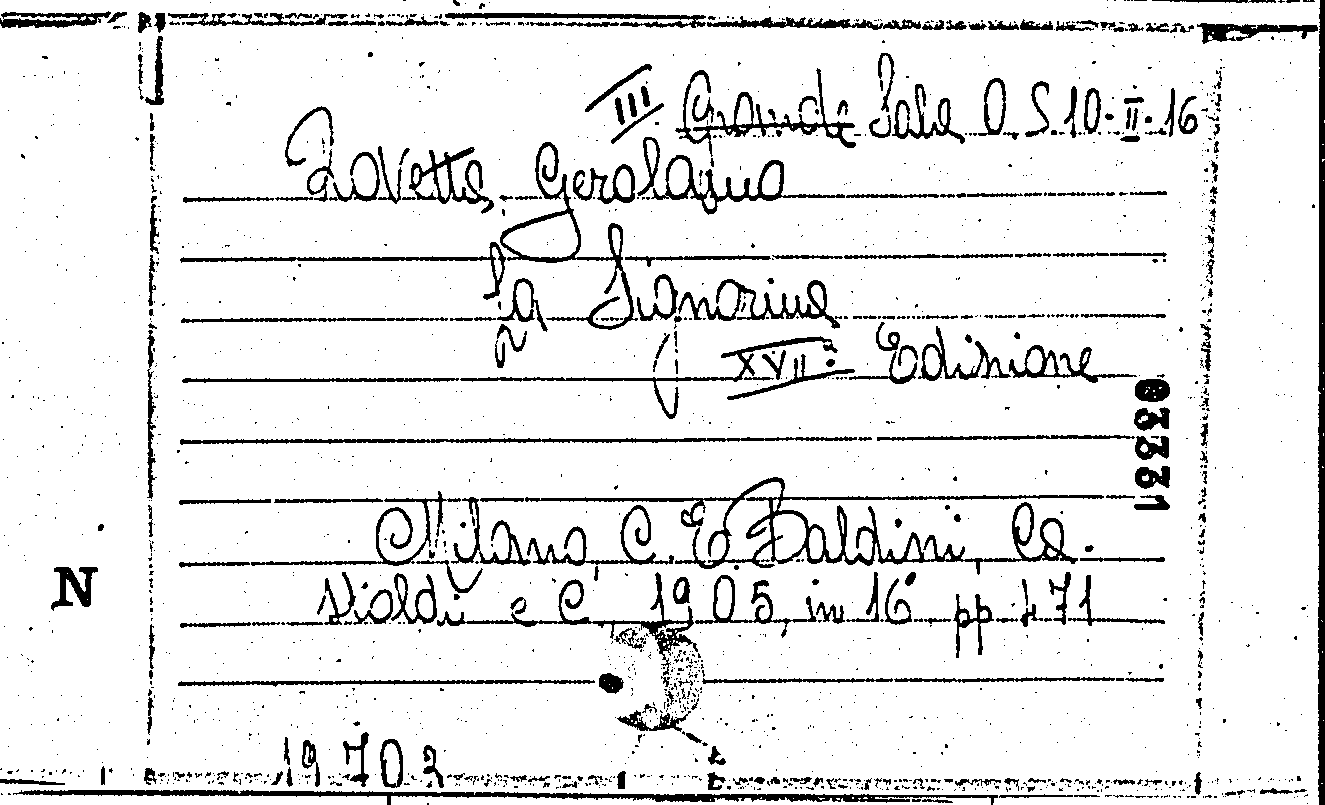 III Grande Sala O. S. 10-II-16
Rovetta, Gerolamo
La Signorina
XVIIª Edizione
03331
Milano, C. E. Baldini, Ca-
stoldi e C. 1905, in 16° pp. 471
N
19703